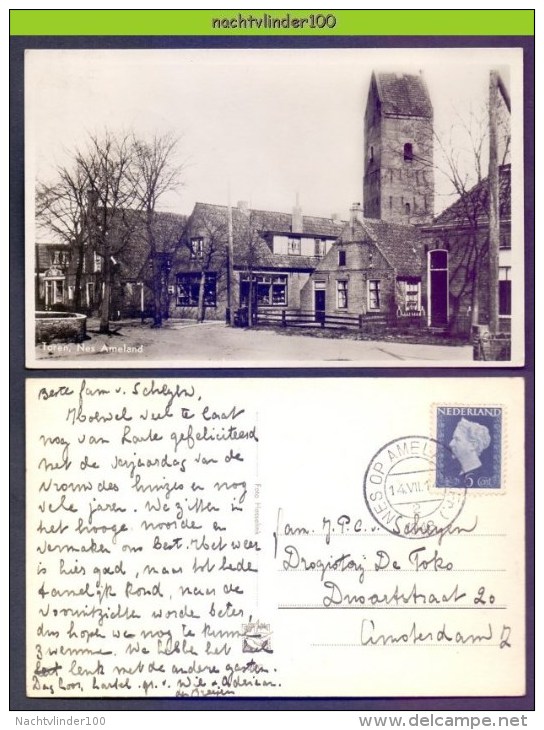 nachtvlinder100
Toren, Nes Ameland
Beste fam v. Scheyen,
Hoewel veel te laat
nog van harte gefeliciteerd
met de verjaardag van de
vrouw des huizes en nog
vele jaren. We zitten in
het hooge noorden en
vermaken ons best. Het weer
is hier goed, maar tot heden
tamelijk koud, maar de
vooruitzichten worden beter,
dus hopen we nog te kunnen
zwemmen. We hebben het
leuk met de andere gasten.
Dag hoor, hartel. gr. v. Wil
NEDERLAND
5 Cent
NES OP AMEL
14.VII.1
Foto Hesselink
fam. J.P.C. v. Scheyen
Drogisterij De Toko
Swartstraat 20
Amsterdam Z
Nachtvlinder100
delcampe.net